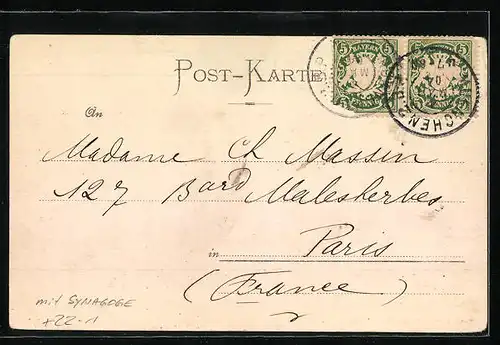 POST-KARTE
5 BAYERN 5
5 BAYERN 5
PFENNIG
MÜNCHEN
An
Madame Ch Massin
127 Bard Malesherbes
in Paris
(France)
mit SYNAGOGE